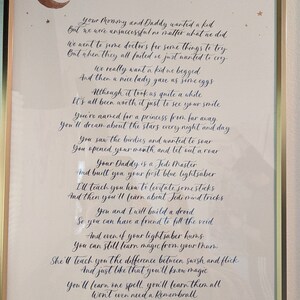 Your Mommy and Daddy wanted a kid
But we were unsuccessful no matter what we did
We went to some doctors for some things to try
But when they all failed we just wanted to cry
We really want a kid we begged
And then a nice lady gave us some eggs
Although it took us quite a while
It's all been worth it just to see your smile
You're named for a princess from far away
You'll dream about the stars every night and day
You saw the birdies and wanted to soar
You opened your mouth and let out a roar
Your Daddy is a Jedi Master
And built you your first blue lightsaber
I'll teach you how to levitate some sticks
And then you'll learn about Jedi mind tricks
You and I will build a droid
So you can have a friend to fill the void
And even if your lightsaber hums
You can still learn magic from your Mum
She'll teach you the difference between swish and flick
And just like that you'll know magic
You'll learn one spell, you'll learn them all
Won't even need a Remembrall